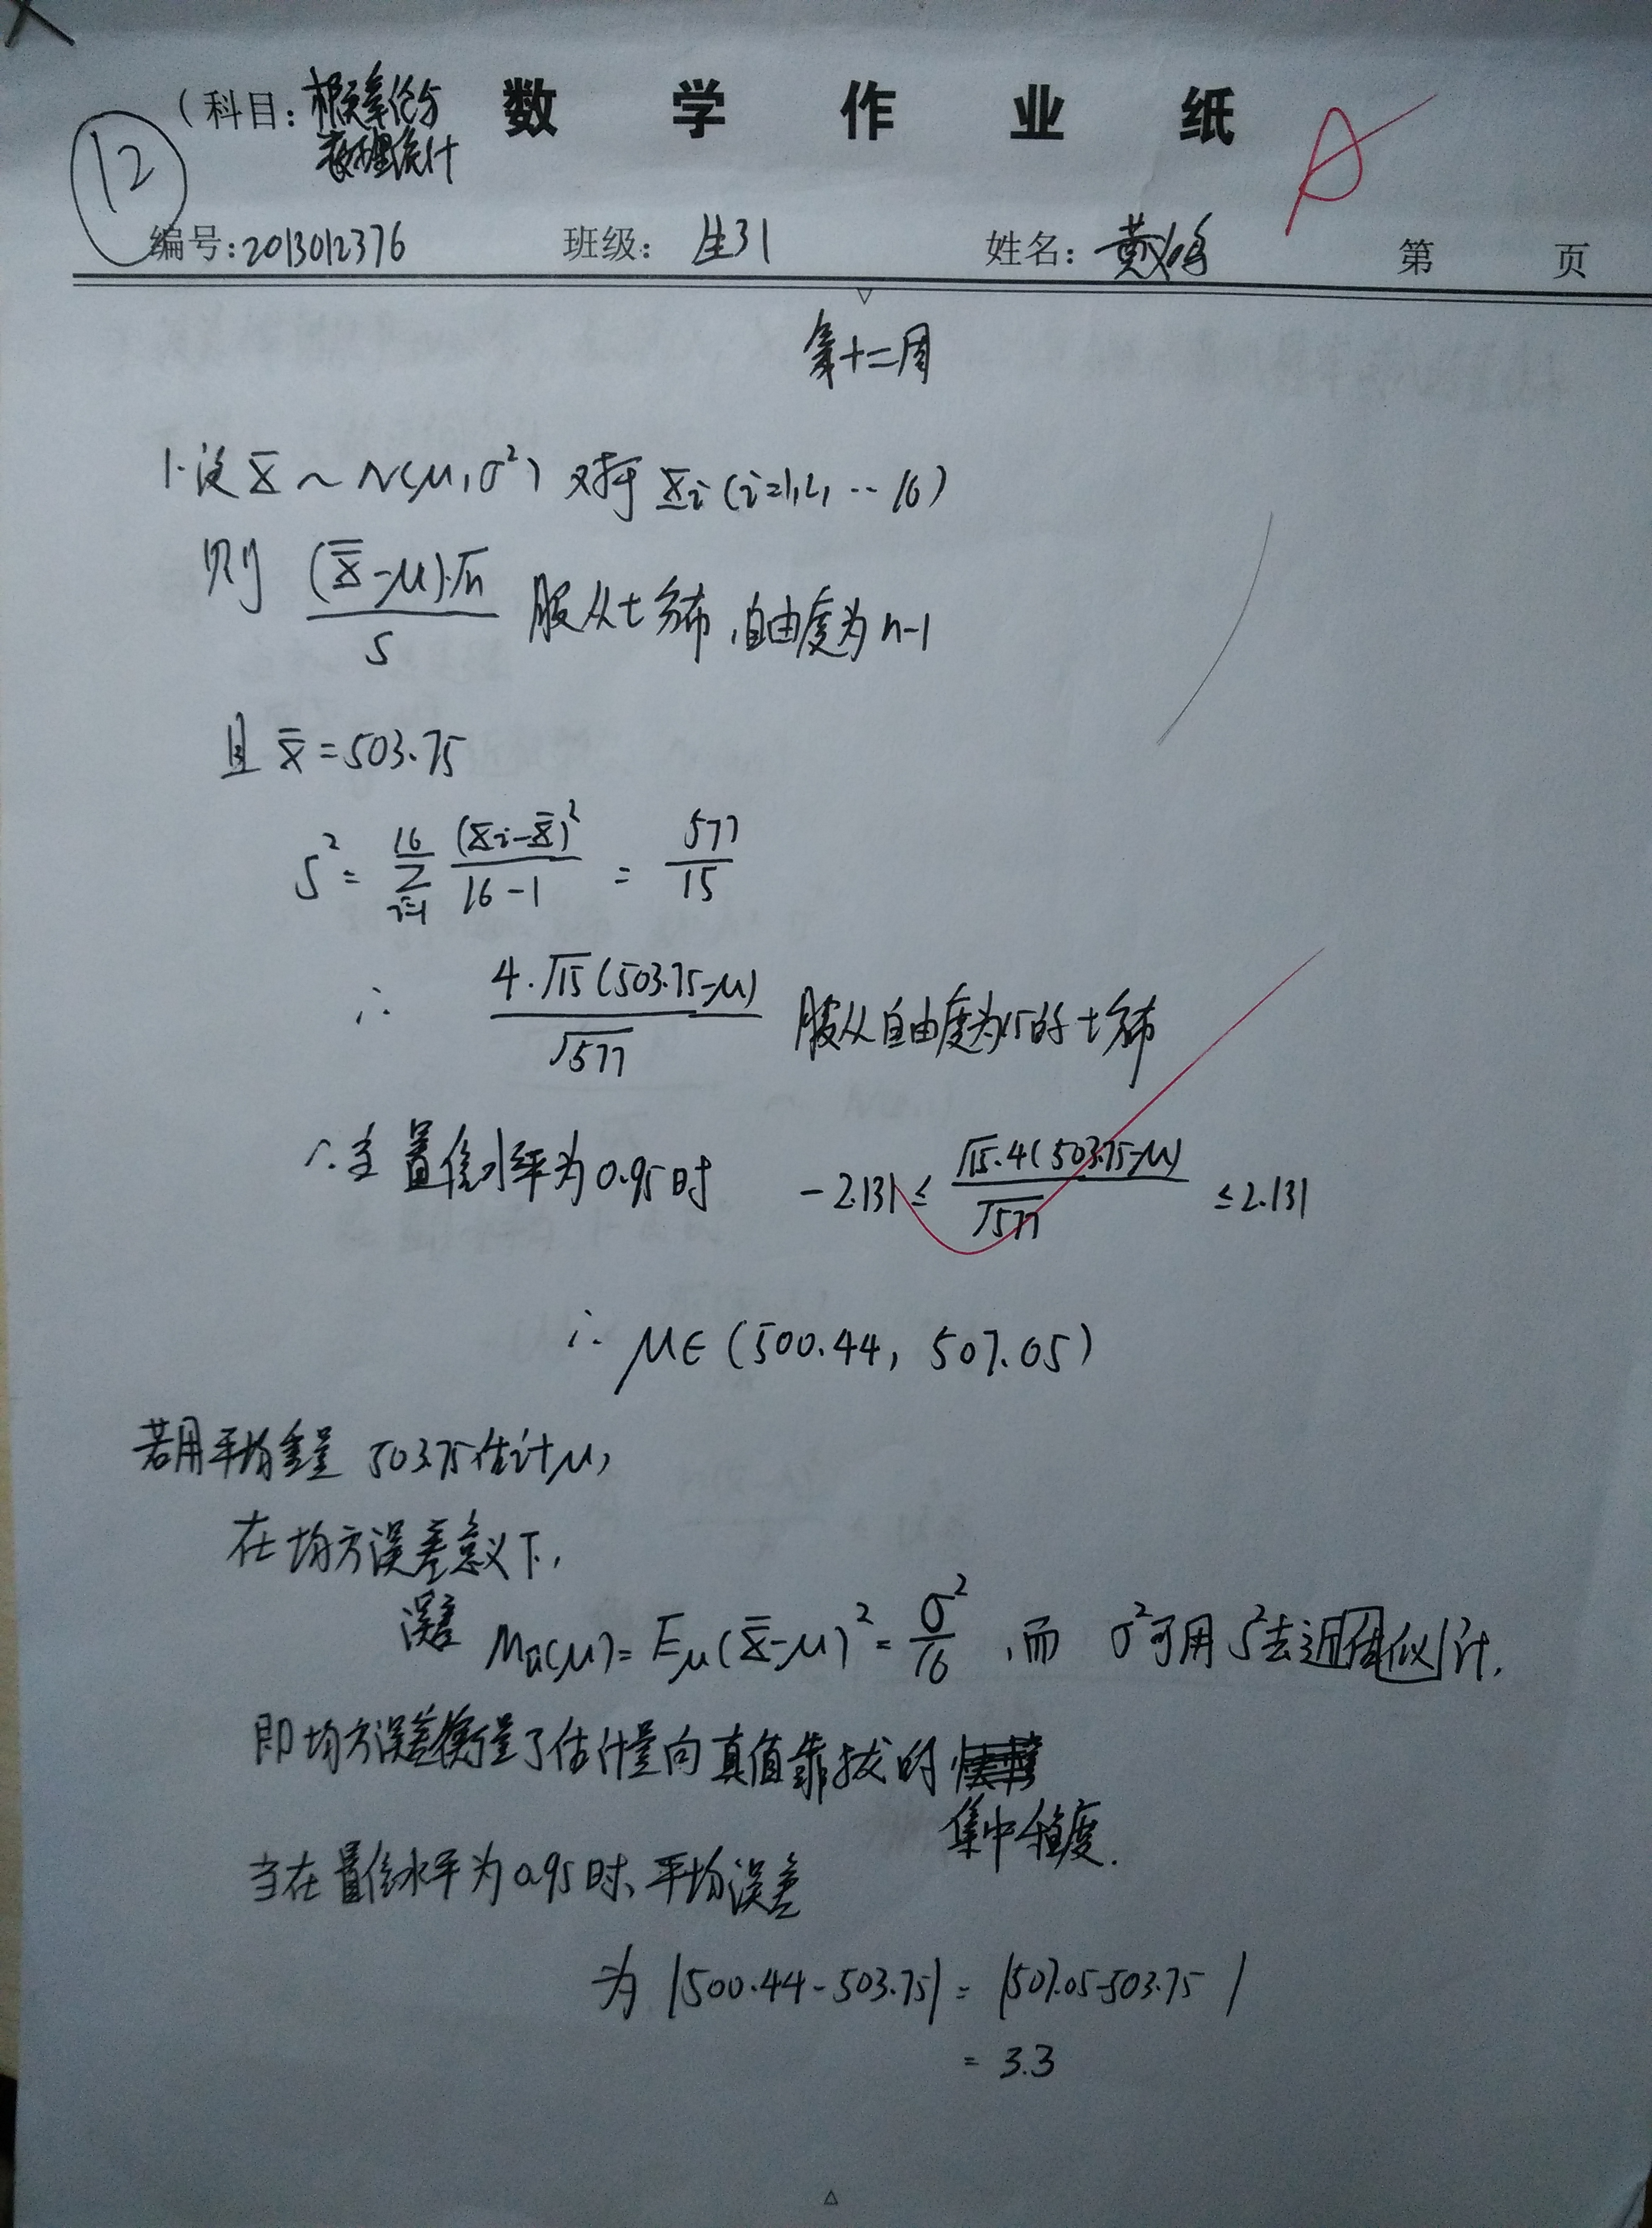 数学作业纸
(科目: 概率论与
数理统计
12
A
编号: 2013012376 班级: 生31 姓名: 黄 第 页
第十二周
1. 设 X ~ N(μ, σ²) 对于 Xi (i=1,2, ··· 16)
则 (X̄-μ)·√n / S 服从t分布, 自由度为n-1
且 x̄ = 503.75
S² = Σ_{i=1}^{16} (Xi-X̄)² / (16-1) = 577/15
∴ 4·√15(503.75-μ) / √577 服从自由度为15的t分布
∴ 在置信水平为0.95时 -2.131 ≤ √15·4(503.75-μ) / √577 ≤ 2.131
∴ μ∈(500.44, 507.05)
若用平均重量 503.75估计μ,
在均方误差意义下,
误差 M_μ̂(μ) = E_μ(X̄-μ)² = σ²/16, 而 σ²可用S²去近似估计.
即均方误差衡量了估计量向真值靠拢的
集中程度.
当在置信水平为0.95时、平均误差
为 |500.44-503.75| = |507.05-503.75|
= 3.3